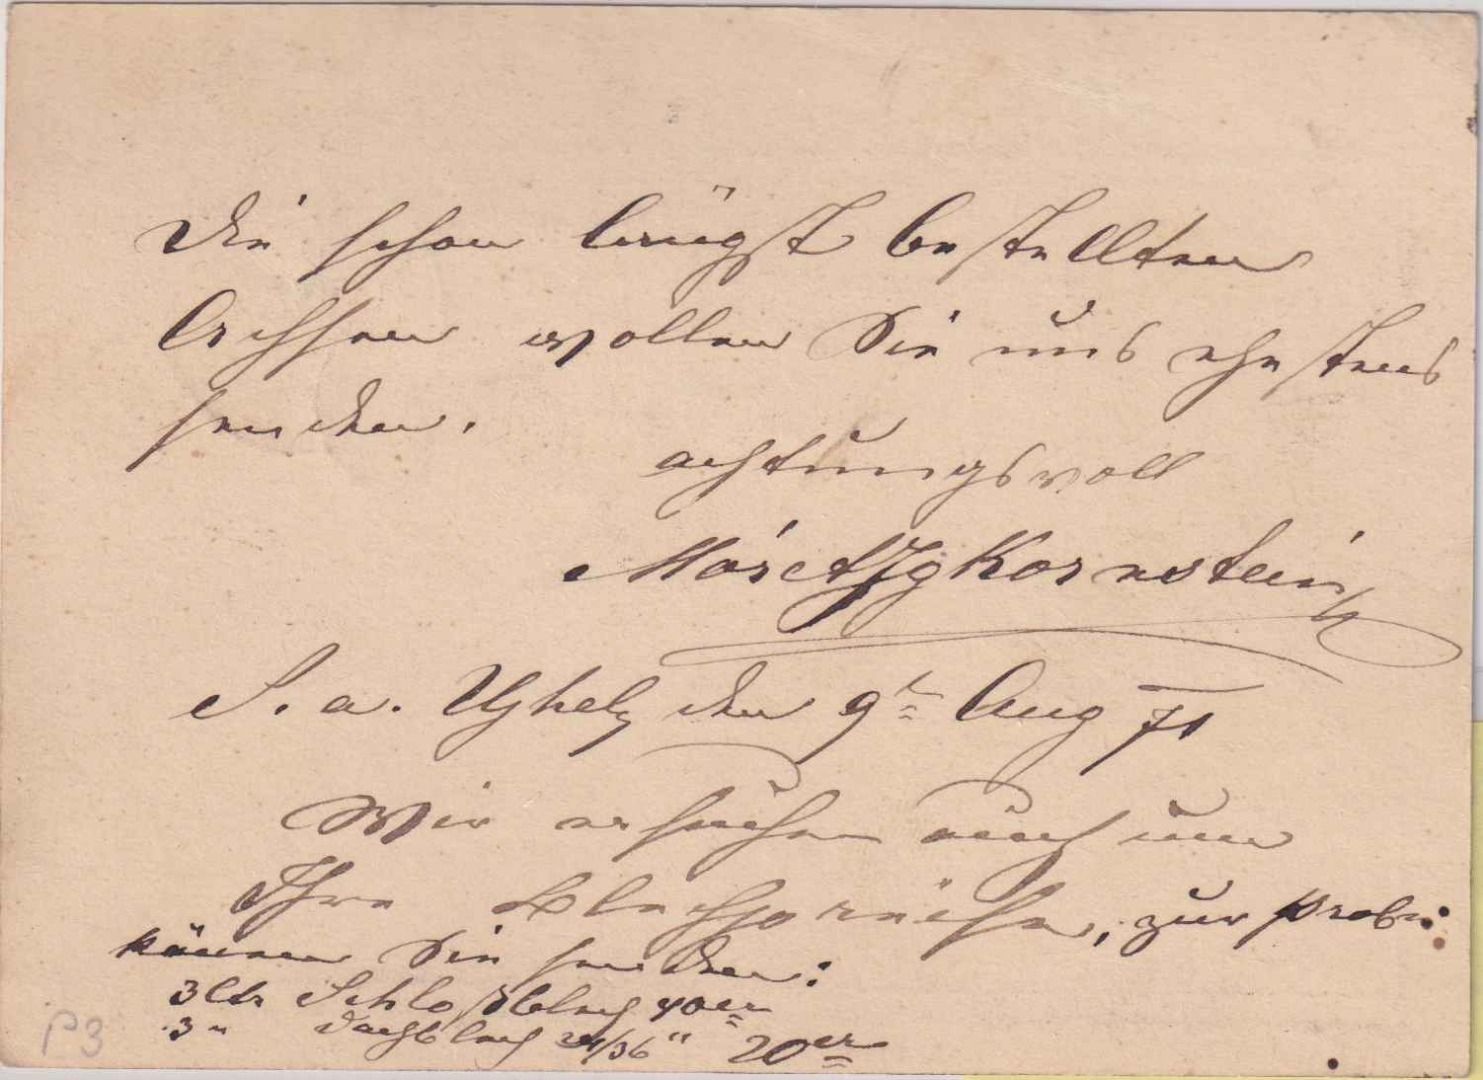 Die schon längst bestellten
Achsen wollen Sie uns ehestens
senden.
achtungsvoll
Kornstein
S. a. Ujhely den 9t Aug 71
Wir ersuchen auch um
Ihre Blechpreise, zur Probe
können Sie senden:
3 Ctr Schloßblech 40er
3 " Dachblech 24/36" 20er
P3